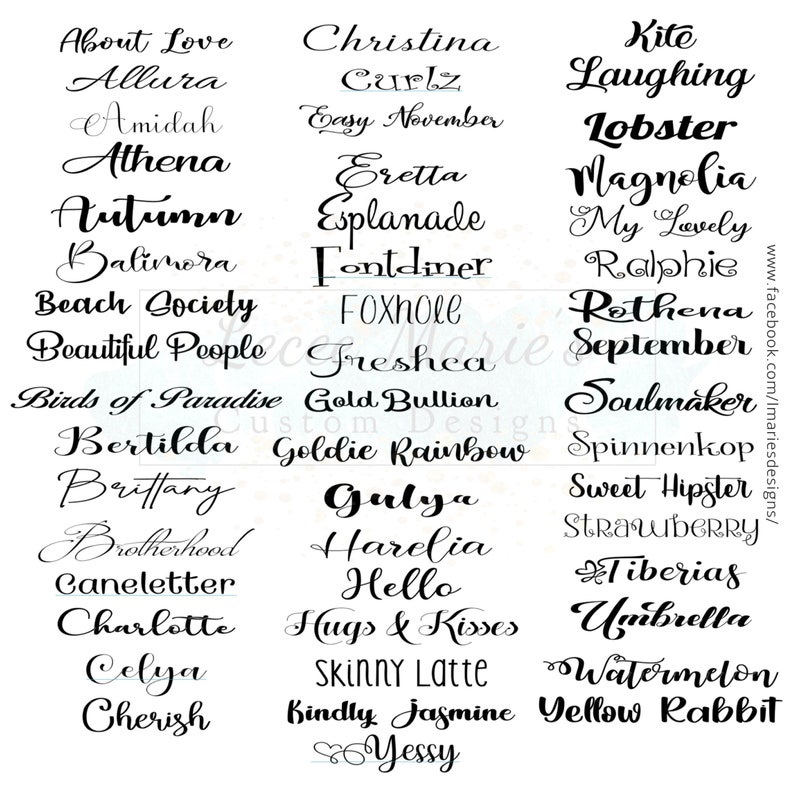 About Love
Allura
Amidah
Athena
Autumn
Balimora
Beach Society
Beautiful People
Birds of Paradise
Bertilda
Brittany
Brotherhood
Caneletter
Charlotte
Celya
Cherish
Christina
Curlz
Easy November
Eretta
Esplanade
Fontdiner
Foxhole
Freshca
Gold Bullion
Goldie Rainbow
Gulya
Harelia
Hello
Hugs & Kisses
Skinny Latte
Kindly Jasmine
Yessy
Kite
Laughing
Lobster
Magnolia
My Lovely
Ralphie
Rothena
September
Soulmaker
Spinnenkop
Sweet Hipster
Strawberry
Tiberias
Umbrella
Watermelon
Yellow Rabbit
www.facebook.com/lmariesdesigns/
Lece Marie's
Custom Designs